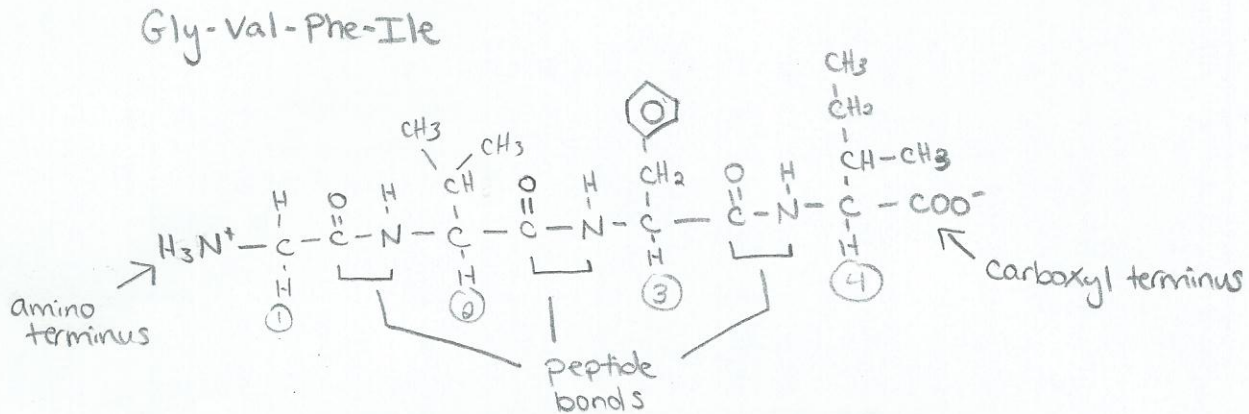 Gly-Val-Phe-Ile
CH3
CH2
CH3 CH3
H O H CH O H CH2 O H CH-CH3
H3N+ - C - C - N - C - C - N - C - C - N - C - COO-
H H H H
1 2 3 4
amino
terminus
carboxyl terminus
peptide
bonds